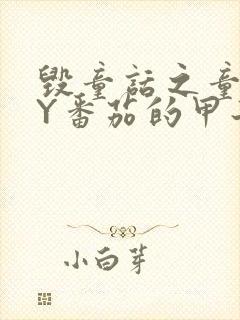 毁童话之童
Y番茄的甲
小白芽